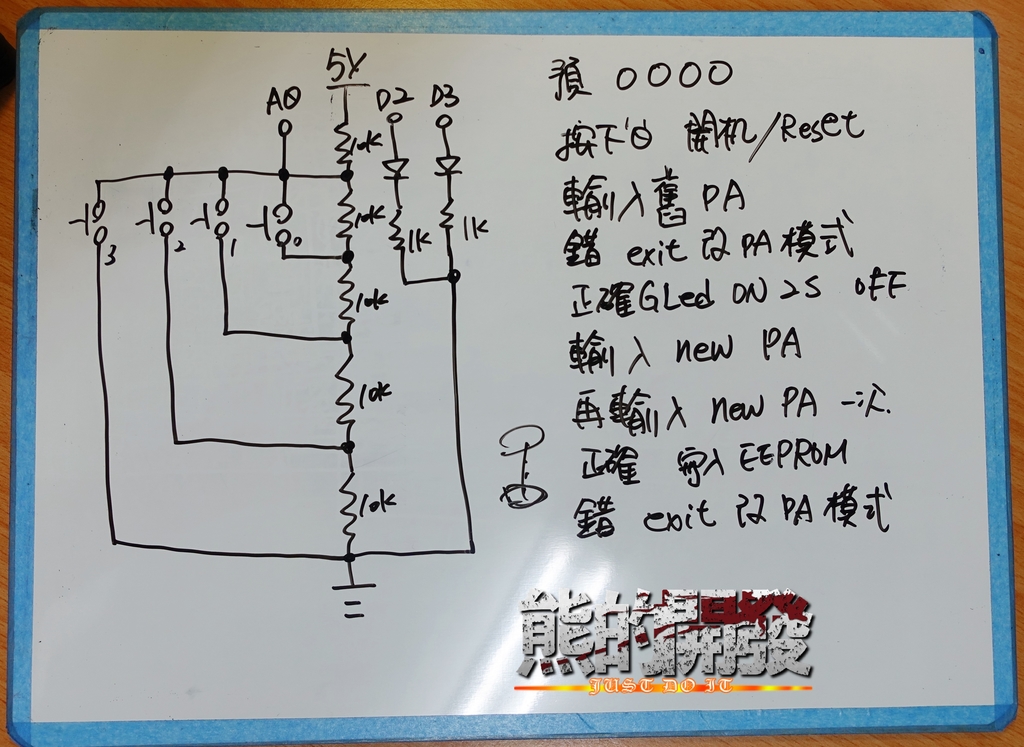 5V
A0
D2 D3
10K
10K
1K
1K
3
2
1
0
10K
10K
10K
預 0000
按下'0' 開机/Reset
輸入舊 PA
錯 exit 改PA模式
正確GLed ON 2S OFF
輸入 new PA
再輸入 new PA 一次.
正確 寫入EEPROM
錯 exit 改PA模式
熊的開發
JUST DO IT